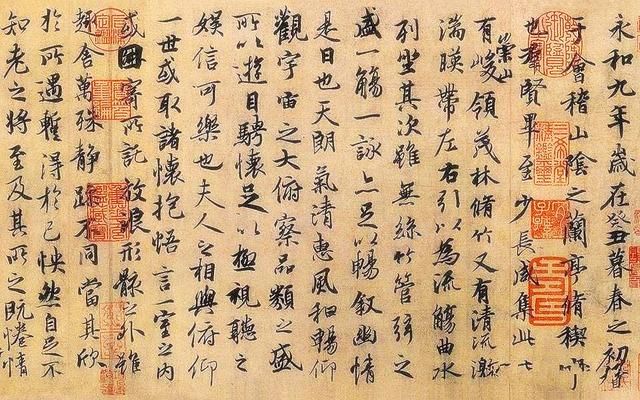 永和九年歲在癸丑暮春之初會
于會稽山陰之蘭亭脩稧
也羣賢畢至少長咸集此
有崇山峻領茂林脩竹又有清流激
湍暎帶左右引以為流觴曲水
列坐其次雖無絲竹管弦之
盛一觴一詠亦足以暢敘幽情
是日也天朗氣清惠風和暢仰
觀宇宙之大俯察品類之盛
所以遊目騁懷足以極視聽之
娛信可樂也夫人之相與俯仰
一世或取諸懷抱悟言一室之內
或因寄所託放浪形骸之外雖
趣舍萬殊靜躁不同當其欣
於所遇暫得於己怏然自足不
知老之將至及其所之既惓情